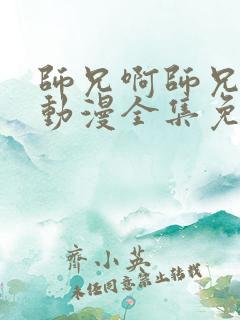 師兄啊師兄
動漫全集免
齊小英
未经同意禁止转载